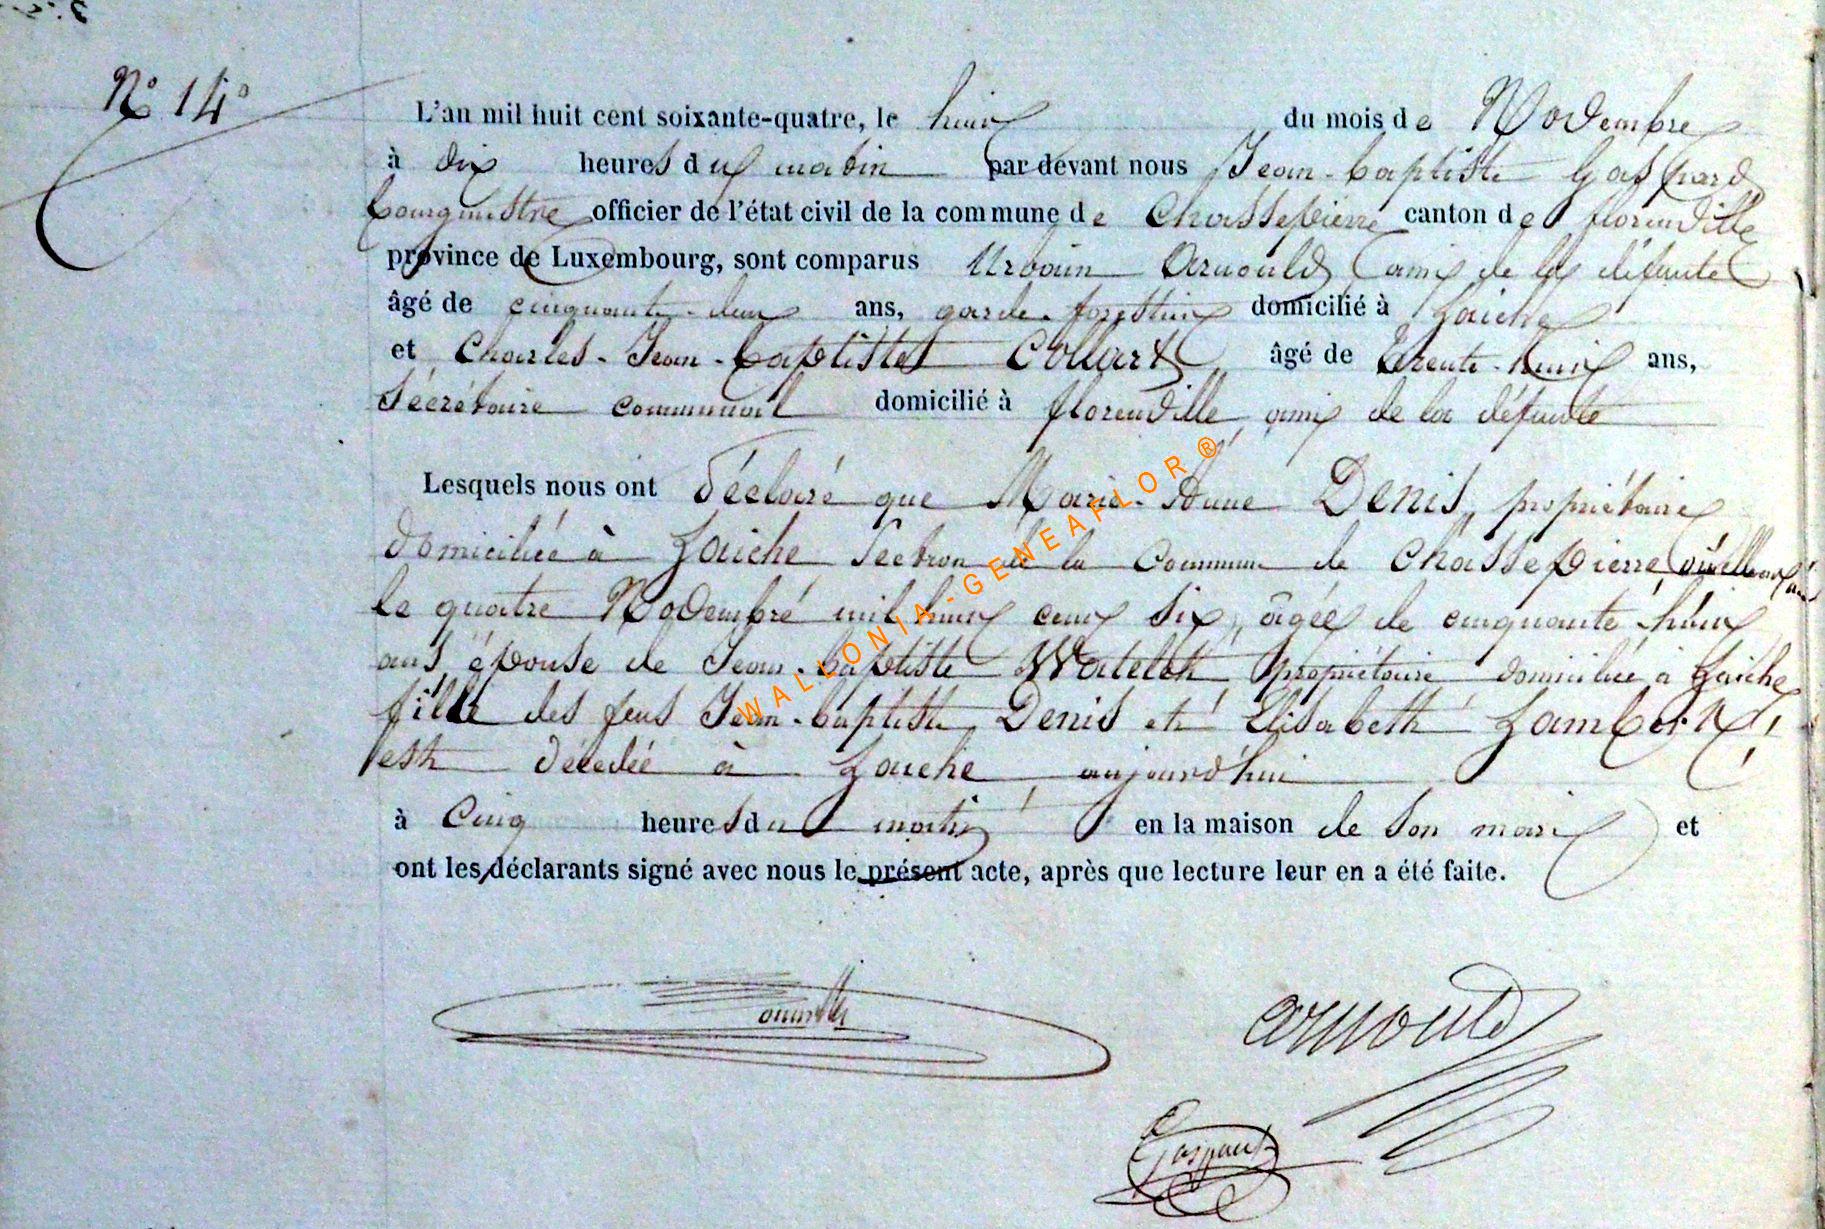 N° 14°
L'an mil huit cent soixante-quatre, le huit du mois de Novembre
à dix heures du matin par devant nous Jean-baptiste Gaspard
bourgmestre officier de l'état civil de la commune de Chassepierre canton de florenville
province de Luxembourg, sont comparus Urbain Arnould ami de la défunte
âgé de cinquante-deux ans, garde-forestier domicilié à Laiche
et Charles-Jean-baptiste Collart âgé de trente-huit ans,
Sécrétaire communal domicilié à florenville, ami de la défunte
Lesquels nous ont déclaré que Marie-Anne Denis, propriétaire
domiciliée à Laiche, Section de la Commune de Chassepierre,
le quatre Novembre mil huit cent six, âgée de cinquante-huit
ans, épouse de Jean-baptiste Watelet propriétaire domicilié à Laiche
fille des feus Jean-baptiste Denis et Elisabeth Lambert,
est décédée à Laiche aujourd'hui
à Cinq heures du matin en la maison de son mari et
ont les déclarants signé avec nous le présent acte, après que lecture leur en a été faite.
WALLONIA-GENEAFLOR®
arnould
Gaspard